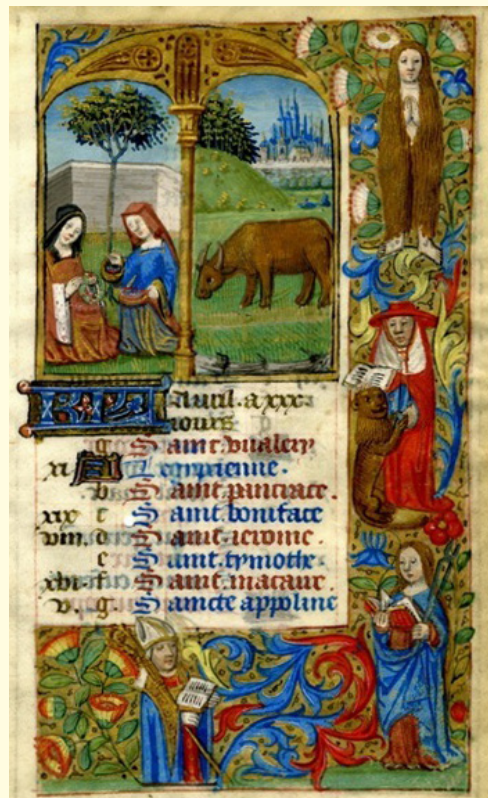 Auril. a xxx
iours
g Saint. vualery
xi A Legiptienne.
b Saint. pancrace.
xix c Saint boniface
viii. d Saint. ierome.
e Saint. tymothe.
xvi. f Saint. macaire.
v. g Saincte appoline